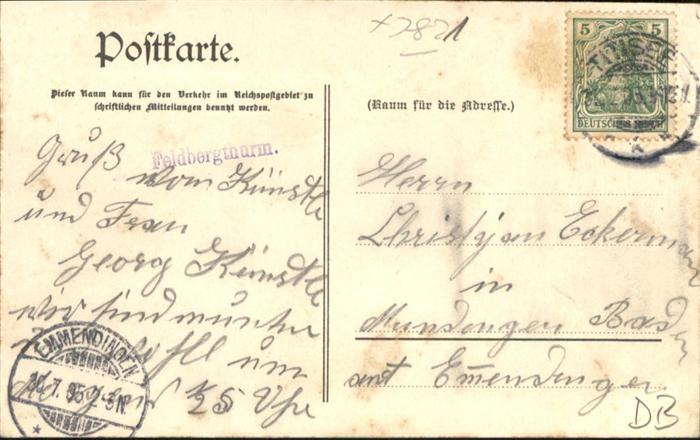 +2821
Postkarte.
Dieser Raum kann für den Verkehr im Reichspostgebiet zu
schriftlichen Mitteilungen benutzt werden.
(Raum für die Adresse.)
5 5
DEUTSCHES REICH
TITISEE
Feldbergthurm.
Gruß
vom Künstle
und Frau
Georg Künstle
wir sind munter
wohl um
1/2 5 Uhr
EMMENDINGEN
Herrn
Christjan Eckermann
in
Mundingen Baden
amt Emmendingen
DB